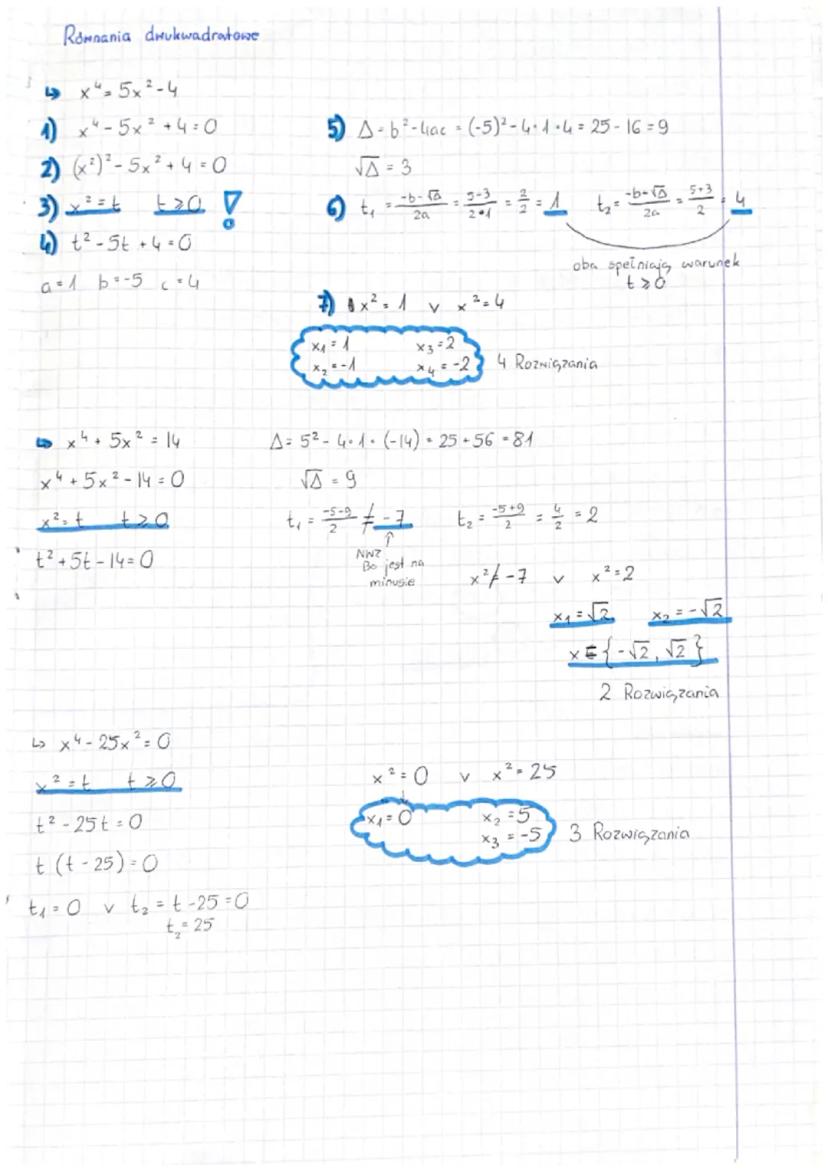 Równania dwukwadratowe
↳ x⁴ = 5x² - 4
1) x⁴ - 5x² + 4 = 0
2) (x²)² - 5x² + 4 = 0
3) x² = t t ≥ 0 !
4) t² - 5t + 4 = 0
a = 1 b = -5 c = 4
5) Δ = b² - 4ac = (-5)² - 4·1·4 = 25 - 16 = 9
√Δ = 3
6) t₁ = (-b-√Δ)/2a = (5-3)/(2·1) = 2/2 = 1 t₂ = (-b+√Δ)/2a = (5+3)/2 = 4
oba spełniają warunek
t ≥ 0
7) x² = 1 v x² = 4
x₁ = 1 x₃ = 2
x₂ = -1 x₄ = -2 4 Rozwiązania
↳ x⁴ + 5x² = 14
x⁴ + 5x² - 14 = 0
x² = t t ≥ 0
t² + 5t - 14 = 0
Δ = 5² - 4·1·(-14) = 25 + 56 = 81
√Δ = 9
t₁ = (-5-9)/2 ≠ -7 t₂ = (-5+9)/2 = 4/2 = 2
↑
Bo jest na
minusie
x² ≠ -7 v x² = 2
x₁ = √2 x₂ = -√2
x ∈ {-√2, √2}
2 Rozwiązania
↳ x⁴ - 25x² = 0
x² = t t ≥ 0
t² - 25t = 0
t (t - 25) = 0
t₁ = 0 v t₂ = t - 25 = 0
t₂ = 25
x² = 0 v x² = 25
↓
x₁ = 0 x₂ = 5
x₃ = -5 3 Rozwiązania